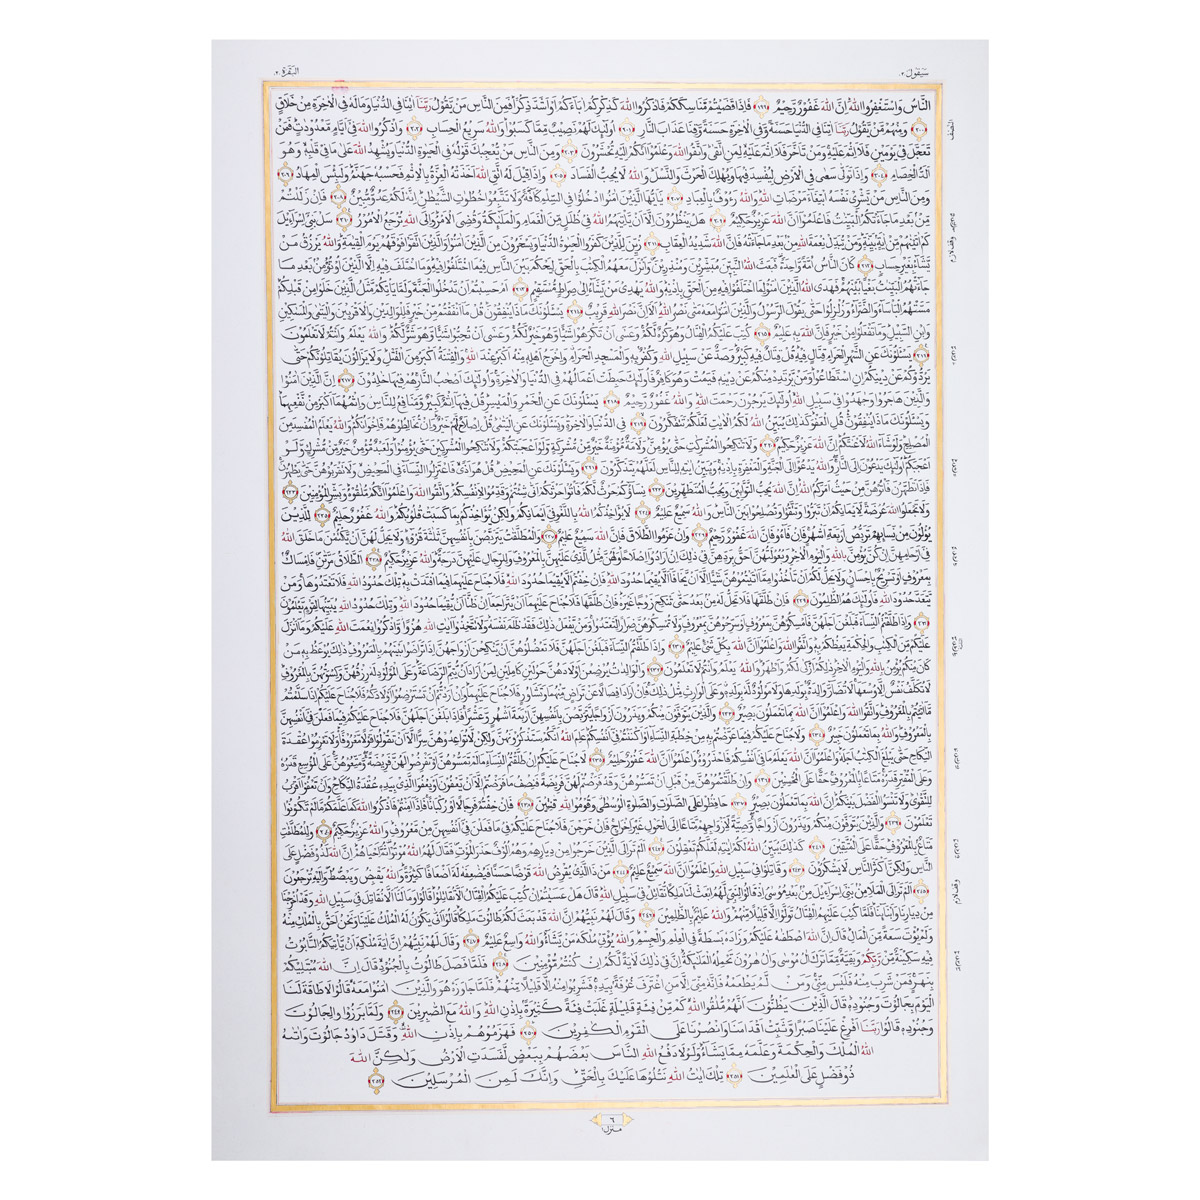 سيقول ٢
البقرة ٢
الناس واستغفروا الله ان الله غفور رحيم ١٩٩ فاذا قضيتم مناسككم فاذكروا الله كذكركم اباءكم او اشد ذكرا فمن الناس من يقول ربنا اتنا في الدنيا وماله في الاخرة من خلاق
٢٠٠ ومنهم من يقول ربنا اتنا في الدنيا حسنة وفي الاخرة حسنة وقنا عذاب النار ٢٠١ اولئك لهم نصيب مما كسبوا والله سريع الحساب ٢٠٢ واذكروا الله في ايام معدودات فمن
تعجل في يومين فلا اثم عليه ومن تاخر فلا اثم عليه لمن اتقى واتقوا الله واعلموا انكم اليه تحشرون ٢٠٣ ومن الناس من يعجبك قوله في الحيوة الدنيا ويشهد الله على ما في قلبه وهو
الد الخصام ٢٠٤ واذا تولى سعى في الارض ليفسد فيها ويهلك الحرث والنسل والله لا يحب الفساد ٢٠٥ واذا قيل له اتق الله اخذته العزة بالاثم فحسبه جهنم ولبئس المهاد ٢٠٦
ومن الناس من يشري نفسه ابتغاء مرضات الله والله رءوف بالعباد ٢٠٧ يايها الذين امنوا ادخلوا في السلم كافة ولا تتبعوا خطوات الشيطان انه لكم عدو مبين ٢٠٨ فان زللتم
من بعد ما جاءتكم البينت فاعلموا ان الله عزيز حكيم ٢٠٩ هل ينظرون الا ان ياتيهم الله في ظلل من الغمام والملئكة وقضي الامر والى الله ترجع الامور ٢١٠ سل بني اسرائيل
كم اتينهم من اية بينة ومن يبدل نعمة الله من بعد ما جاءته فان الله شديد العقاب ٢١١ زين للذين كفروا الحيوة الدنيا ويسخرون من الذين امنوا والذين اتقوا فوقهم يوم القيمة والله يرزق من
يشاء بغير حساب ٢١٢ كان الناس امة واحدة فبعث الله النبين مبشرين ومنذرين وانزل معهم الكتب بالحق ليحكم بين الناس فيما اختلفوا فيه وما اختلف فيه الا الذين اوتوه من بعد ما
جاءتهم البينت بغيا بينهم فهدى الله الذين امنوا لما اختلفوا فيه من الحق باذنه والله يهدي من يشاء الى صراط مستقيم ٢١٣ ام حسبتم ان تدخلوا الجنة ولما ياتكم مثل الذين خلوا من قبلكم
مستهم الباساء والضراء وزلزلوا حتى يقول الرسول والذين امنوا معه متى نصر الله الا ان نصر الله قريب ٢١٤ يسئلونك ماذا ينفقون قل ما انفقتم من خير فللوالدين والاقربين واليتمى والمسكين
وابن السبيل وما تفعلوا من خير فان الله به عليم ٢١٥ كتب عليكم القتال وهو كره لكم وعسى ان تكرهوا شيئا وهو خير لكم وعسى ان تحبوا شيئا وهو شر لكم والله يعلم وانتم لا تعلمون
٢١٦ يسئلونك عن الشهر الحرام قتال فيه قل قتال فيه كبير وصد عن سبيل الله وكفر به والمسجد الحرام واخراج اهله منه اكبر عند الله والفتنة اكبر من القتل ولا يزالون يقاتلونكم حتى
يردوكم عن دينكم ان استطاعوا ومن يرتدد منكم عن دينه فيمت وهو كافر فاولئك حبطت اعمالهم في الدنيا والاخرة واولئك اصحب النار هم فيها خلدون ٢١٧ ان الذين امنوا
والذين هاجروا وجهدوا في سبيل الله اولئك يرجون رحمت الله والله غفور رحيم ٢١٨ يسئلونك عن الخمر والميسر قل فيهما اثم كبير ومنافع للناس واثمهما اكبر من نفعهما
ويسئلونك ماذا ينفقون قل العفو كذلك يبين الله لكم الايت لعلكم تتفكرون ٢١٩ في الدنيا والاخرة ويسئلونك عن اليتمى قل اصلاح لهم خير وان تخالطوهم فاخوانكم والله يعلم المفسد من
المصلح ولو شاء الله لاعنتكم ان الله عزيز حكيم ٢٢٠ ولا تنكحوا المشركت حتى يؤمن ولامة مؤمنة خير من مشركة ولو اعجبتكم ولا تنكحوا المشركين حتى يؤمنوا ولعبد مؤمن خير من مشرك ولو
اعجبكم اولئك يدعون الى النار والله يدعوا الى الجنة والمغفرة باذنه ويبين ايته للناس لعلهم يتذكرون ٢٢١ ويسئلونك عن المحيض قل هو اذى فاعتزلوا النساء في المحيض ولا تقربوهن حتى يطهرن
فاذا تطهرن فاتوهن من حيث امركم الله ان الله يحب التوابين ويحب المتطهرين ٢٢٢ نساؤكم حرث لكم فاتوا حرثكم انى شئتم وقدموا لانفسكم واتقوا الله واعلموا انكم ملقوه وبشر المؤمنين ٢٢٣
ولا تجعلوا الله عرضة لايمانكم ان تبروا وتتقوا وتصلحوا بين الناس والله سميع عليم ٢٢٤ لا يؤاخذكم الله باللغو في ايمانكم ولكن يؤاخذكم بما كسبت قلوبكم والله غفور حليم ٢٢٥ للذين
يؤلون من نسائهم تربص اربعة اشهر فان فاءو فان الله غفور رحيم ٢٢٦ وان عزموا الطلاق فان الله سميع عليم ٢٢٧ والمطلقت يتربصن بانفسهن ثلثة قروء ولا يحل لهن ان يكتمن ما خلق الله
في ارحامهن ان كن يؤمن بالله واليوم الاخر وبعولتهن احق بردهن في ذلك ان ارادوا اصلاحا ولهن مثل الذي عليهن بالمعروف وللرجال عليهن درجة والله عزيز حكيم ٢٢٨ الطلاق مرتن فامساك
بمعروف او تسريح باحسان ولا يحل لكم ان تاخذوا مما اتيتموهن شيئا الا ان يخافا الا يقيما حدود الله فان خفتم الا يقيما حدود الله فلا جناح عليهما فيما افتدت به تلك حدود الله فلا تعتدوها ومن
يتعد حدود الله فاولئك هم الظلمون ٢٢٩ فان طلقها فلا تحل له من بعد حتى تنكح زوجا غيره فان طلقها فلا جناح عليهما ان يتراجعا ان ظنا ان يقيما حدود الله وتلك حدود الله يبينها لقوم يعلمون
٢٣٠ واذا طلقتم النساء فبلغن اجلهن فامسكوهن بمعروف او سرحوهن بمعروف ولا تمسكوهن ضرارا لتعتدوا ومن يفعل ذلك فقد ظلم نفسه ولا تتخذوا ايت الله هزوا واذكروا نعمت الله عليكم وما انزل
عليكم من الكتب والحكمة يعظكم به واتقوا الله واعلموا ان الله بكل شيء عليم ٢٣١ واذا طلقتم النساء فبلغن اجلهن فلا تعضلوهن ان ينكحن ازواجهن اذا تراضوا بينهم بالمعروف ذلك يوعظ به من
كان منكم يؤمن بالله واليوم الاخر ذلكم ازكى لكم واطهر والله يعلم وانتم لا تعلمون ٢٣٢ والوالدت يرضعن اولادهن حولين كاملين لمن اراد ان يتم الرضاعة وعلى المولود له رزقهن وكسوتهن بالمعروف
لا تكلف نفس الا وسعها لا تضار والدة بولدها ولا مولود له بولده وعلى الوارث مثل ذلك فان ارادا فصالا عن تراض منهما وتشاور فلا جناح عليهما وان اردتم ان تسترضعوا اولادكم فلا جناح عليكم اذا سلمتم
ما اتيتم بالمعروف واتقوا الله واعلموا ان الله بما تعملون بصير ٢٣٣ والذين يتوفون منكم ويذرون ازواجا يتربصن بانفسهن اربعة اشهر وعشرا فاذا بلغن اجلهن فلا جناح عليكم فيما فعلن في انفسهن
بالمعروف والله بما تعملون خبير ٢٣٤ ولا جناح عليكم فيما عرضتم به من خطبة النساء او اكننتم في انفسكم علم الله انكم ستذكرونهن ولكن لا تواعدوهن سرا الا ان تقولوا قولا معروفا ولا تعزموا عقدة
النكاح حتى يبلغ الكتب اجله واعلموا ان الله يعلم ما في انفسكم فاحذروه واعلموا ان الله غفور حليم ٢٣٥ لا جناح عليكم ان طلقتم النساء ما لم تمسوهن او تفرضوا لهن فريضة ومتعوهن على الموسع قدره
وعلى المقتر قدره متاعا بالمعروف حقا على المحسنين ٢٣٦ وان طلقتموهن من قبل ان تمسوهن وقد فرضتم لهن فريضة فنصف ما فرضتم الا ان يعفون او يعفوا الذي بيده عقدة النكاح وان تعفوا اقرب
للتقوى ولا تنسوا الفضل بينكم ان الله بما تعملون بصير ٢٣٧ حافظوا على الصلوت والصلوة الوسطى وقوموا لله قنتين ٢٣٨ فان خفتم فرجالا او ركبانا فاذا امنتم فاذكروا الله كما علمكم ما لم تكونوا
تعلمون ٢٣٩ والذين يتوفون منكم ويذرون ازواجا وصية لازواجهم متاعا الى الحول غير اخراج فان خرجن فلا جناح عليكم في ما فعلن في انفسهن من معروف والله عزيز حكيم ٢٤٠ وللمطلقت
متاع بالمعروف حقا على المتقين ٢٤١ كذلك يبين الله لكم ايته لعلكم تعقلون ٢٤٢ الم تر الى الذين خرجوا من ديارهم وهم الوف حذر الموت فقال لهم الله موتوا ثم احياهم ان الله لذو فضل على
الناس ولكن اكثر الناس لا يشكرون ٢٤٣ وقاتلوا في سبيل الله واعلموا ان الله سميع عليم ٢٤٤ من ذا الذي يقرض الله قرضا حسنا فيضعفه له اضعافا كثيرة والله يقبض ويبصط واليه ترجعون
٢٤٥ الم تر الى الملا من بني اسراءيل من بعد موسى اذ قالوا لنبي لهم ابعث لنا ملكا نقاتل في سبيل الله قال هل عسيتم ان كتب عليكم القتال الا تقاتلوا قالوا وما لنا الا نقاتل في سبيل الله وقد اخرجنا
من ديارنا وابنائنا فلما كتب عليهم القتال تولوا الا قليلا منهم والله عليم بالظلمين ٢٤٦ وقال لهم نبيهم ان الله قد بعث لكم طالوت ملكا قالوا انى يكون له الملك علينا ونحن احق بالملك منه
ولم يؤت سعة من المال قال ان الله اصطفه عليكم وزاده بسطة في العلم والجسم والله يؤتي ملكه من يشاء والله واسع عليم ٢٤٧ وقال لهم نبيهم ان اية ملكه ان ياتيكم التابوت
فيه سكينة من ربكم وبقية مما ترك ال موسى وال هرون تحمله الملئكة ان في ذلك لاية لكم ان كنتم مؤمنين ٢٤٨ فلما فصل طالوت بالجنود قال ان الله مبتليكم
بنهر فمن شرب منه فليس مني ومن لم يطعمه فانه مني الا من اغترف غرفة بيده فشربوا منه الا قليلا منهم فلما جاوزه هو والذين امنوا معه قالوا لا طاقة لنا
اليوم بجالوت وجنوده قال الذين يظنون انهم ملقوا الله كم من فئة قليلة غلبت فئة كثيرة باذن الله والله مع الصبرين ٢٤٩ ولما برزوا لجالوت
وجنوده قالوا ربنا افرغ علينا صبرا وثبت اقدامنا وانصرنا على القوم الكفرين ٢٥٠ فهزموهم باذن الله وقتل داود جالوت واتىه
الله الملك والحكمة وعلمه مما يشاء ولولا دفع الله الناس بعضهم ببعض لفسدت الارض ولكن الله
ذو فضل على العلمين ٢٥١ تلك ايت الله نتلوها عليك بالحق وانك لمن المرسلين ٢٥٢
٦
منزل